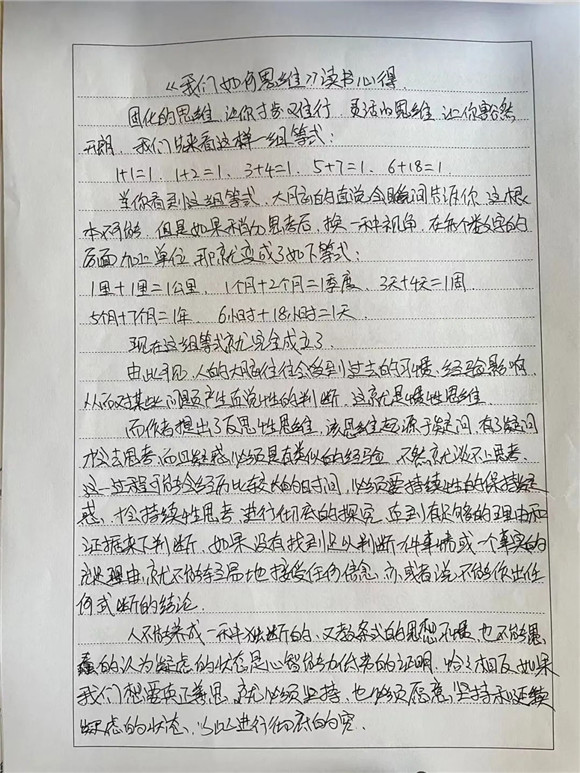 《我们如何思维》读书心得
固化的思维，让你寸步难行，灵活的思维，让你豁然
开朗，我们先来看这样一组等式：
1+1=1、1+2=1、3+4=1、5+7=1、6+18=1
当你看到这组等式，大脑的直觉会瞬间告诉你，这根
本不可能，但是如果稍加思考后，换一种视角，在每个数字的
后面加上单位，那就变成了如下等式：
1里+1里=1公里、1个月+2个月=1季度、3天+4天=1周
5个月+7个月=1年、6小时+18小时=1天
现在这组等式就完全成立了
由此可见，人的大脑往往会受到过去的习惯、经验影响
从而对某些问题产生直觉性的判断，这就是惯性思维
而作者提出了反思性思维，该思维起源于疑问，有了疑问
才会去思考，而且疑惑必须具有类似的经验，不然就谈不上思考，
这一过程可能会经历比较长的时间，必须要持续性的保持疑
惑，才会持续性思考，进行彻底的探究，直到有足够的理由和
证据来下判断，如果没有找到足以判断一件事情或一个事实的
充足理由，就不能轻易地接受任何信念，亦或者说不能做出任
何武断的结论
人不能养成一种独断的、又教条式的思想习惯，也不能愚
蠢的认为疑虑的状态是心智能力低劣的证明，恰恰相反，如果
我们想要真正善思，就必须坚持，也必须愿意，坚持和延续
疑虑的状态、以进行彻底的